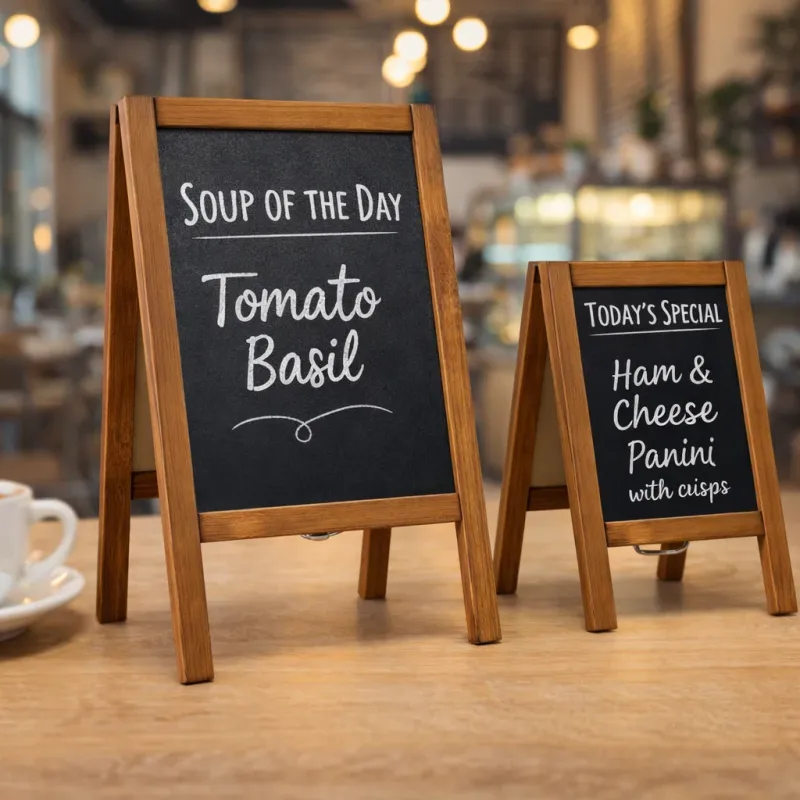 Soup of the Day
Tomato
Basil
Today's Special
Ham &
Cheese
Panini
with cuisps